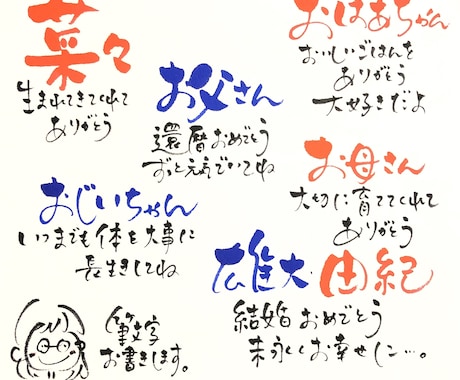 菜々
生まれてきてくれて
ありがとう
お父さん
還暦おめでとう
ずっと元気でいてね
おばあちゃん
おいしいごはんを
ありがとう
大好きだよ
お母さん
大切に育ててくれて
ありがとう
おじいちゃん
いつまでも体を大事に
長生きしてね
雄大・由紀
結婚おめでとう
末永くお幸せに…。
筆文字
お書きします。